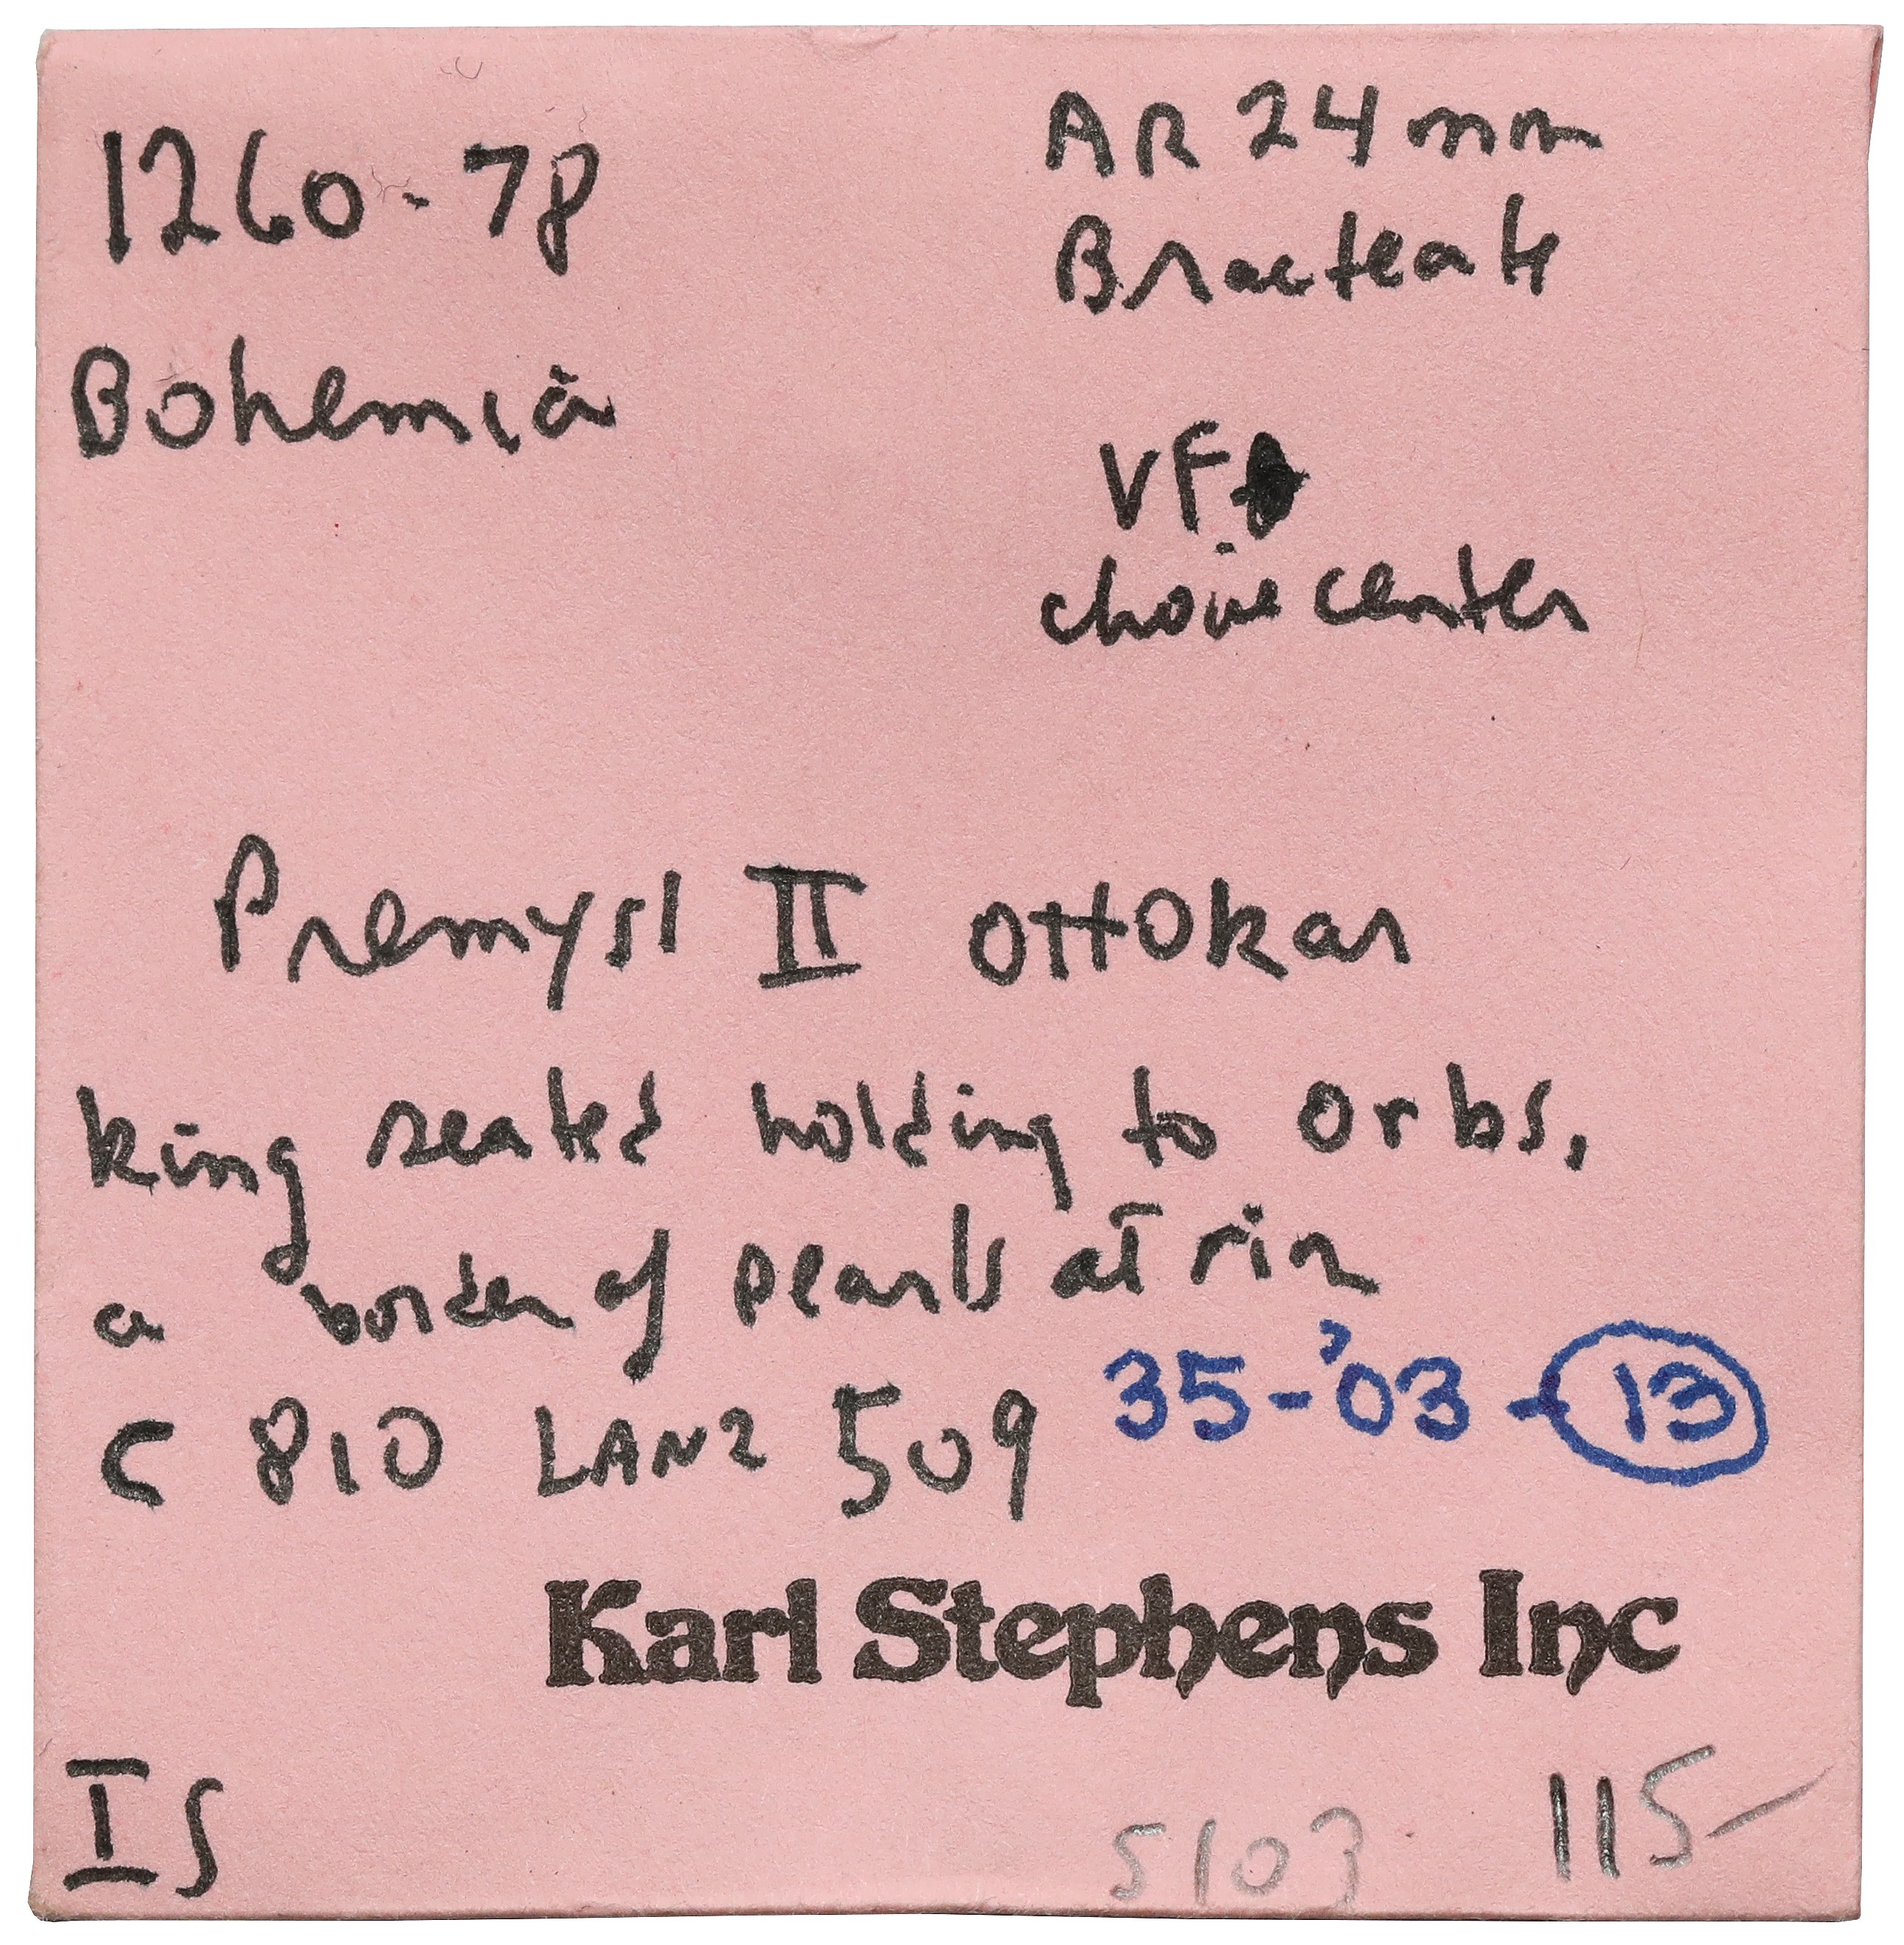 1260-78
AR 24mm
Bracteate
Bohemia
VF
choice center
Premysl II Ottokar
king seated holding to orbs,
a border of pearls at rim
C 810 LANZ 509
35-'03-13
Karl Stephens Inc
IS
5103
115-